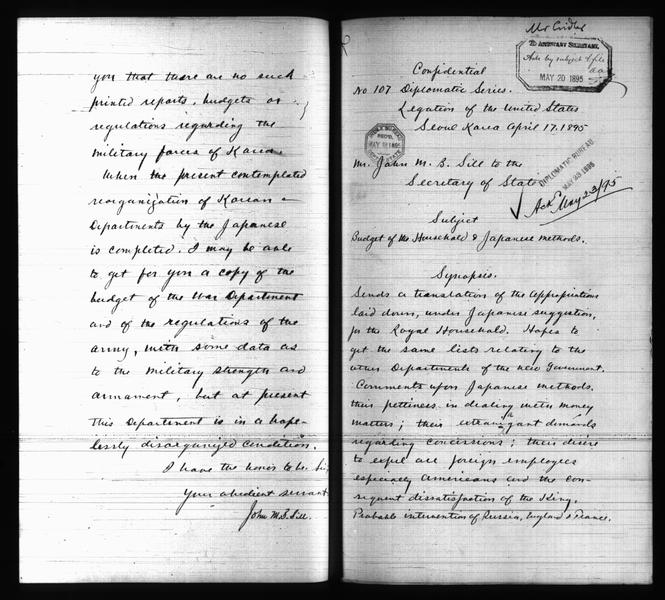 you that there are no such
printed reports, budgets or
regulations regarding the
military forces of Korea.
When the present contemplated
reorganization of Korean
Departments by the Japanese
is completed, I may be able
to get for you a copy of the
budget of the War Department
and of the regulations of the
army, with some data as
to the military strength and
armament, but at present
this Department is in a hope-
lessly disorganized condition.
I have the honor to be Sir,
Your obedient servant
John M.B. Sill.
Mr Cridler
TO ASSISTANT SECRETARY,
Ack by subject & file
MAY 20 1895
Confidential
No 107 Diplomatic Series.
Legation of the United States
Seoul Korea April 17. 1895
MAY 18 1895
Mr. John M. B. Sill to the
Secretary of State
DIPLOMATIC BUREAU
MAY 23 1895
Ack May 23/95
Subject
Budget of the Household & Japanese methods.
Synopsis.
Sends a translation of the appropriations
laid down, under Japanese suggestion,
for the Royal Household. Hopes to
get the same lists relating to the
other Departments of the new Government.
Comments upon Japanese methods,
their pettiness in dealing with money
matters; their extravagant demands
regarding concessions; their desire
to expel all foreign employees
especially Americans and the con-
sequent dissatisfaction of the King.
Probable intervention of Russia, England & France.